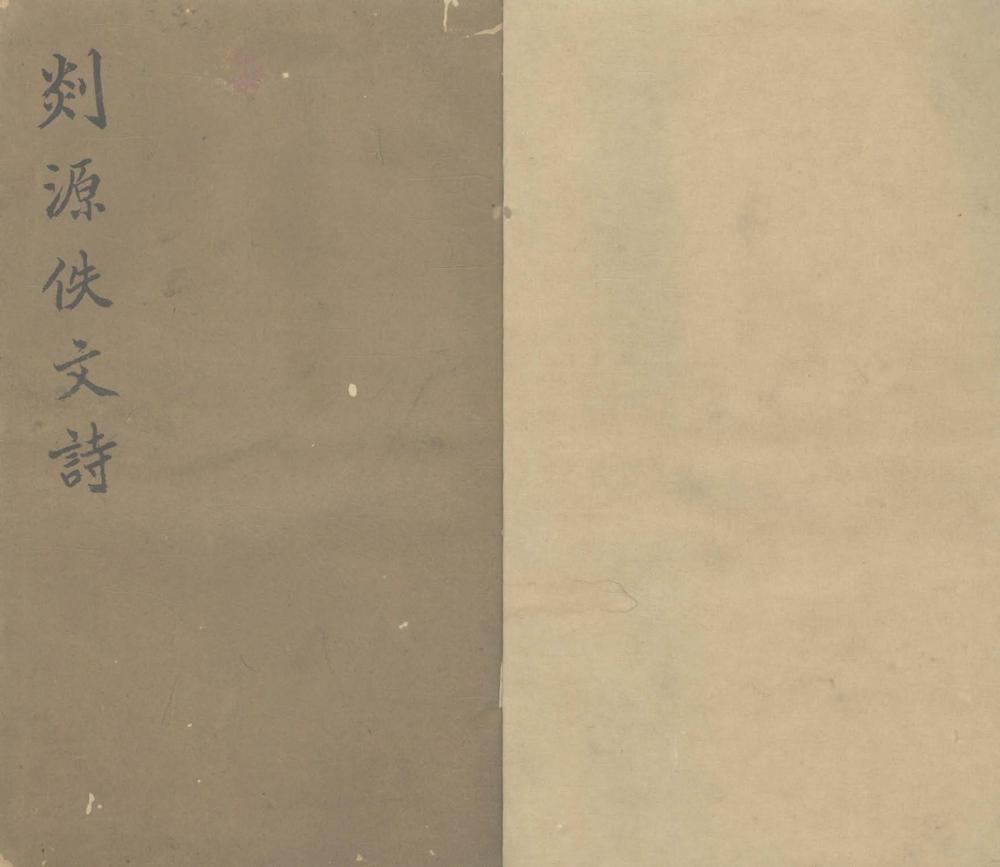 剡源佚文詩